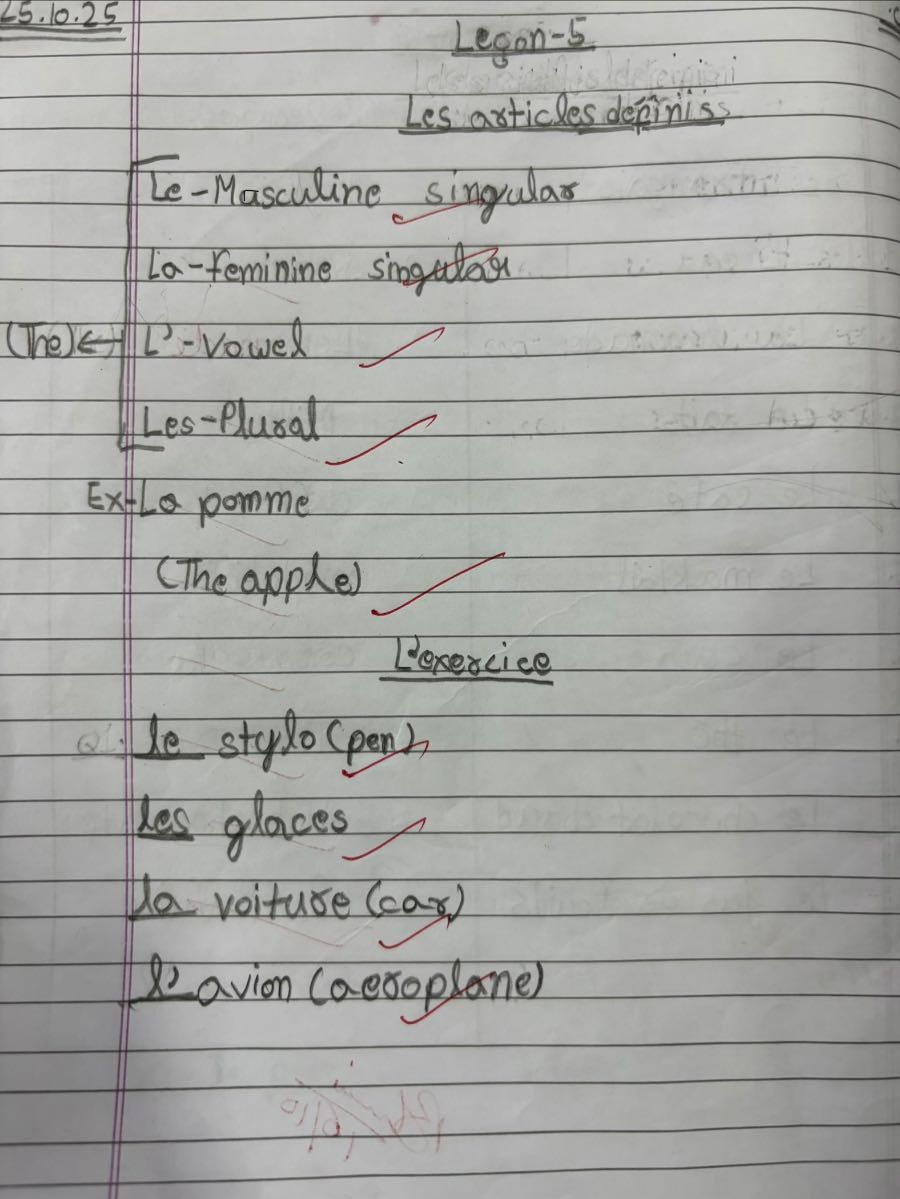 25.10.25
Leçon-5
Les articles définiss
Le-Masculine singular
La-feminine singular
(The) ← L'-Vowel
Les-Plural
Ex-La pomme
(The apple)
L'exercice
Q1. le stylo (pen)
les glaces
la voiture (car)
l' avion (aeroplane)